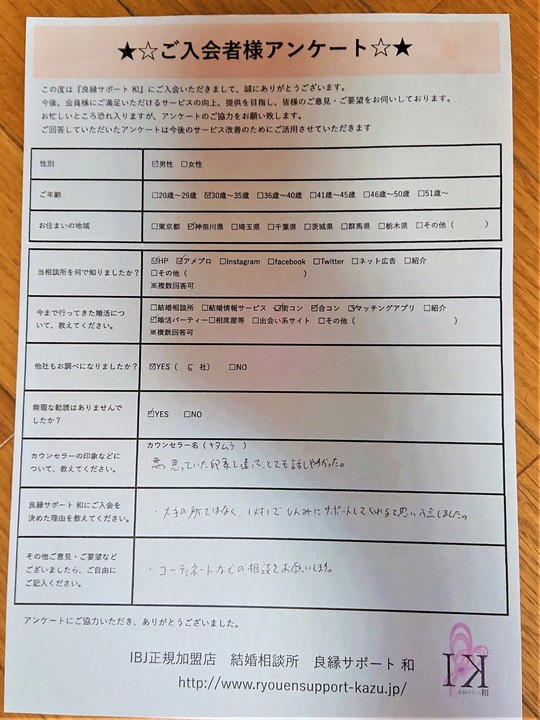 ★☆ご入会者様アンケート☆★
この度は『良縁サポート 和』にご入会いただきまして、誠にありがとうございます。
今後、会員様にご満足いただけるサービスの向上、提供を目指し、皆様のご意見・ご要望をお伺いしております。
お忙しいところ恐れ入りますが、アンケートのご協力をお願い致します。
ご回答していただいたアンケートは今後のサービス改善のためにご活用させていただきます
性別
☑男性 □女性
ご年齢
□20歳～29歳 ☑30歳～35歳 □36歳～40歳 □41歳～45歳 □46歳～50歳 □51歳～
お住まいの地域
□東京都 ☑神奈川県 □埼玉県 □千葉県 □茨城県 □群馬県 □栃木県 □その他( )
当相談所を何で知りましたか?
☑HP ☑アメプロ □Instagram □facebook □Twitter □ネット広告 □紹介
□その他( )
※複数回答可
今まで行ってきた婚活につ
いて、教えてください。
□結婚相談所 □結婚情報サービス ☑街コン ☑合コン ☑マッチングアプリ □紹介
☑婚活パーティー□相席屋等 □出会い系サイト □その他( )
※複数回答可
他社もお調べになりましたか?
☑YES( 社) □NO
無理な勧誘はありませんで
したか?
☑YES □NO
カウンセラーの印象などに
ついて、教えてください。
カウンセラー名(キタムラ)
思っていた印象と違って、とても話しやすかった。
良縁サポート 和にご入会を
決めた理由を教えてください。
・大手の所ではなく、1対1でしんみにサポートしてくれると思い入会しました。
その他ご意見・ご要望など
ございましたら、ご自由に
ご記入ください。
・コーディネートなどの相談をお願いします。
アンケートにご協力いただき、ありがとうございました。
IBJ正規加盟店 結婚相談所 良縁サポート 和
http://www.ryouensupport-kazu.jp/